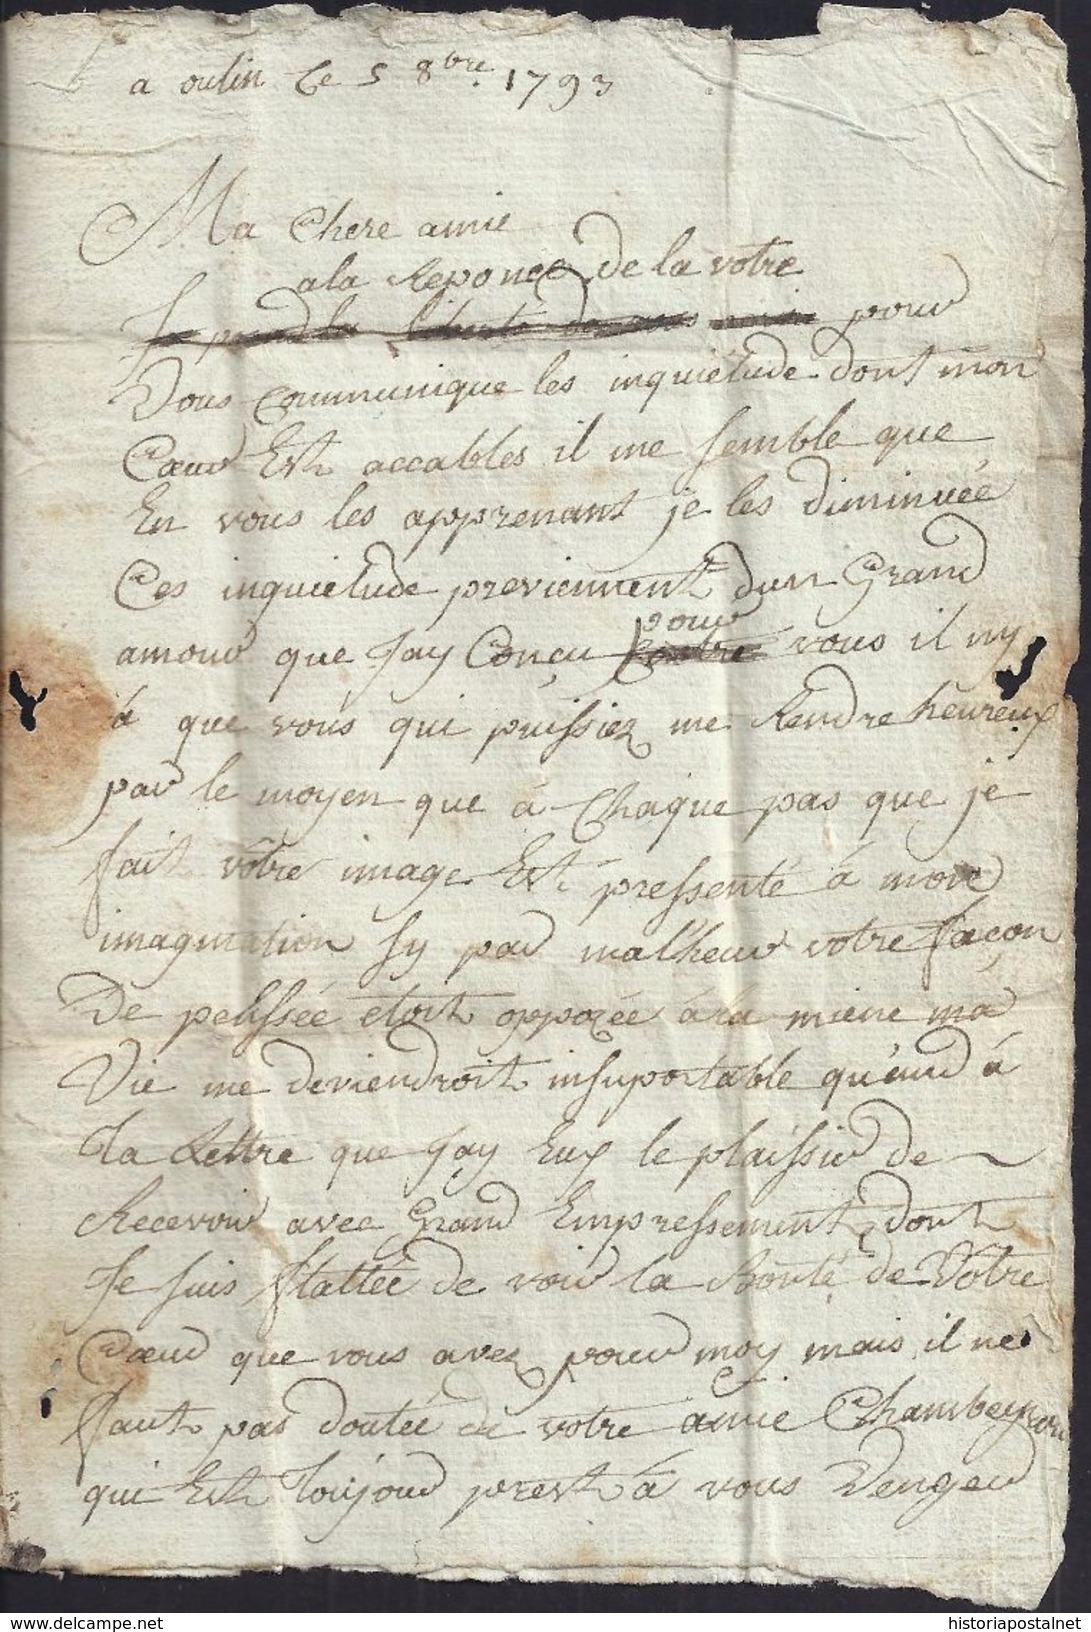 a oulin Ce 5 8bre 1793
Ma Chere amie
a la Reponce de la votre
Je prend la liberté de vous pour
Vous communique les inquietude dont mon
Cœur Est accables il me semble que
En vous les apprenant je les diminuée
Ces inquietude previennent dun Grand
pour
amour que Jay Conçu contre vous il ny
à que vous qui puissiez me Rendre heureux
par le moyen que à Chaque pas que je
fait vôtre image Est pressenté à mon
imagination sy par malheur votre façon
De penssée etoit oppozée à la miene ma
Vie me deviendroit insuportable quand à
la Lettre que Jay Eux le plaissir de
Recevoir avec Grand Empressement dont
Je suis flattée de voir la Bonté de Votre
Cœur que vous avez pour moy mais il ne
faut pas doutée de votre amie Chambeyron
qui Est Toujour prest à vous Venger
www.delcampe.net
historiapostalnet